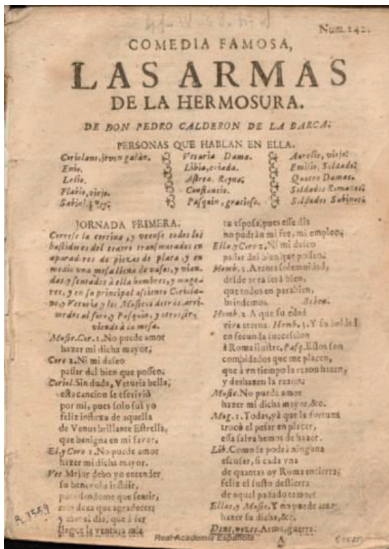 Num. 142.
COMEDIA FAMOSA,
LAS ARMAS
DE LA HERMOSURA.
DE DON PEDRO CALDERON DE LA BARCA.
PERSONAS QUE HABLAN EN ELLA.
Coriolano, joven galàn.
Enio.
Lelio.
Flavio, viejo.
Sabinio, Rey.
Veturia Dama.
Libia, criada.
Astrea Reyna.
Pasquin, gracioso.
Aurelio, viejo.
Emilio, Soldado.
Quatro Damas.
Soldados Romanos.
Soldados Sabinos.
JORNADA PRIMERA.
Correse la cortina, y veense todos los
bastidores del teatro transmutados en
aparadores de piezas de plata, y en
medio una mesa llena de vasos, y vian-
das, y sentados à ella hombres, y muge-
res, y en su principal assiento Coriola-
no, y Veturia, y los Musicos detràs, arri-
mados al foro, y Pasquin, y otros sir-
viendo à la mesa.
Music. Cor. 1. No puede amor
hazer mi dicha mayor,
Coro 2. Ni mi deseo
passar del bien que posseo.
Coriol. Sin duda, Veturia bella,
esta cancion se escriviò
por mi, pues solo fui yo
feliz influxo de aquella
de Venus brillante Estrella,
que benigna en mi favor.
El, y Coro 1. No puede amor
hazer mi dicha mayor.
Vet. Mejor debo yo entender
su benevola
pues
que agradecer;
y
llegue la ventura mia
tu esposa, pues esse dia
no podràn mi fee, mi empleo,
Ella, y Coro 2. Ni mi deseo
passar del bien que posseo.
Homb. 1. A tanta solemnidad,
desde oy serà bien,
que todos en parabien,
brindemos.
Homb. 2. A que su edad
viva eterna. Homb. 3. Y su beldad
en fecunda succession
à Roma ilustre. Pasq. Estos son
combidados que me placen,
que à un tiempo la razon hazen,
y deshazen la razon.
Music. No puede amor
hazer mi dicha mayor, &c.
Mug. 1. Todas, yà que la fortuna
trocò el pesar en placer,
essa salva hemos de hazer.
Lib. Como se podrà ninguna
escusar, si cada una
de quantas oy Roma encierra,
feliz el susto destierra
de aquel passado temor?
Ellas, y Music. Y no puede amor
hazer su dicha, &c.
Dent. voces. Arma, guerra.
A
Real Academia Española